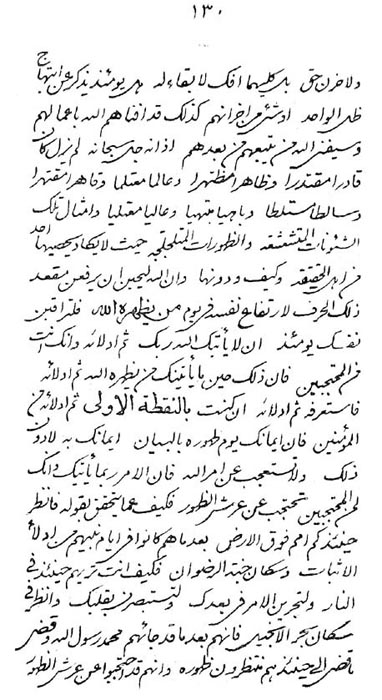 ١٣٠
ولا حزن حق بل كليهما افك لا بقاء له هل يومئذ يذكر عن ابتهاج
ظل الواحد او شئ من احزانهم كذلك قد افناهم الله باعمالهم
وسيفنى الله من يتبعهم من بعدهم اذ انه جل سبحانه لم يزل كان
قادرا مقتدرا وظاهرا مظتهرا وعالما معتلما وقاهرا مقتهرا
وسالطا مستلطا وباهيا مبتهيا وعاليا معتليا وامثال تلك
الشئونات المتشعشعة والظهورات المتلجلجة حيث لا يكاد يحصيها احد
من اهل الحقيقة وكيف ودونها وان الله ليحبن ان يرفعن مقعد
ذلك الحرف لارتفاع نفسه فى يوم من يظهره الله فلتراقبن
نفسك يومئذ ان لا يأتينك الله ربك ثم ادلائه وانك انت
من المحتجبين فان ذلك حين ما يأتينك من يظهره الله ثم ادلائه
فاستعرفه ثم ادلائه ان كنت بالنقطة الاولى ثم ادلائه من
المؤمنين فان ايمانك يوم ظهوره بالبيان ايمانك به لا دون
ذلك ولا تستعجب عن امر الله فان الامر ربما يأتيك وانك
لمن المحتجبين تحتجب عن عرش الظهور فكيف عما يتحقق بقوله فانظر
حينئذ كم امم فوق الارض بعد ما هم كانوا فى ايام نبيهم من ادلاء
الاثبات وسكان جنة الرضوان فكيف انت تريهم حينئذ فى
النار ولتجرين الامر فى بعدك ولتستبصرن بقلبك وانظر فى
سكان بحر الانجيل فانهم بعد ما قد جائهم محمد رسول الله وقضى
ما قضى الى حينئذ هم منتظرون ظهوره وانهم قد احتجبوا عن عرش الظهور